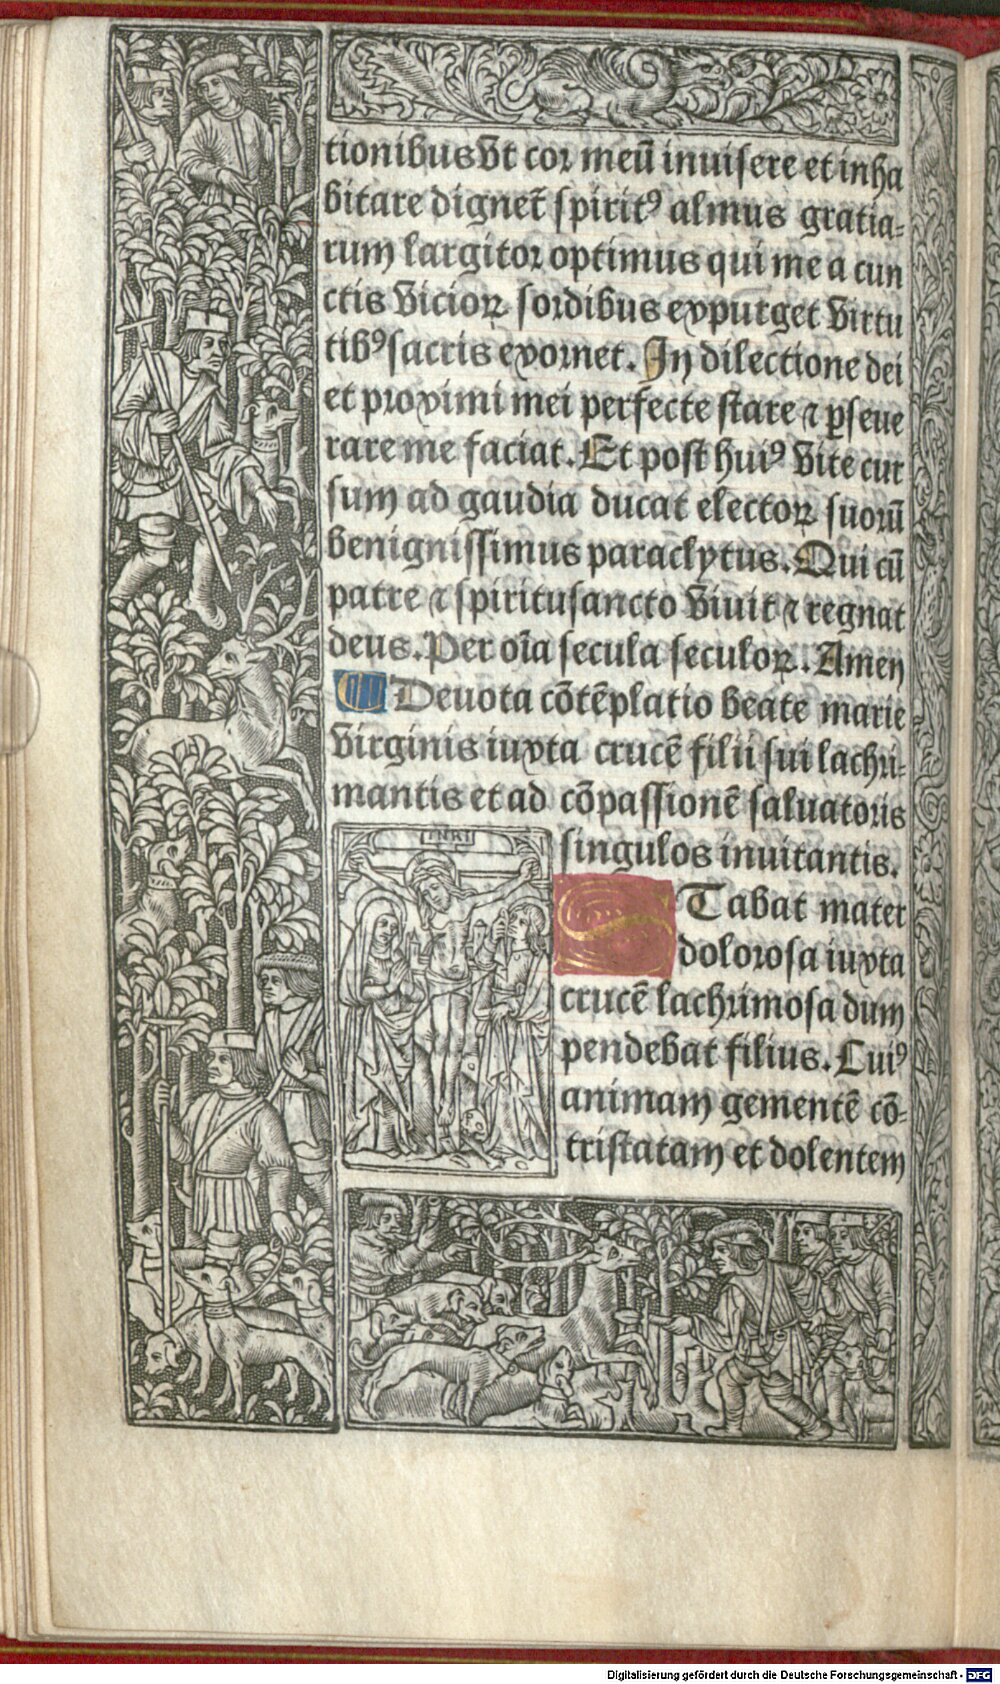 tionibus vt cor meū inuisere et inha
bitare dignet̄ spiritꝰ almus gratia⸗
rum largitor optimus qui me a cun
ctis vicioꝝ sordibus expurget virtu
tibꝰ sacris exornet. In dilectione dei
et proximi mei perfecte stare ⁊ ꝑseue
rare me faciat. Et post huiꝰ vite cur
sum ad gaudia ducat electoꝝ suorū
benignissimus paraclytus. Qui cū
patre ⁊ spiritusancto viuit ⁊ regnat
deus. Per oīa secula seculoꝝ. Amen
¶ Deuota cōtēplatio beate marie
virginis iuxta crucē filii sui lachri⸗
mantis et ad cōpassionē saluatoris
singulos inuitantis.
INRI
STabat mater
dolorosa iuxta
crucē lachrimosa dum
pendebat filius. Cuiꝰ
animam gementē cō⸗
tristatam et dolentem
Digitalisierung gefördert durch die Deutsche Forschungsgemeinschaft - DFG